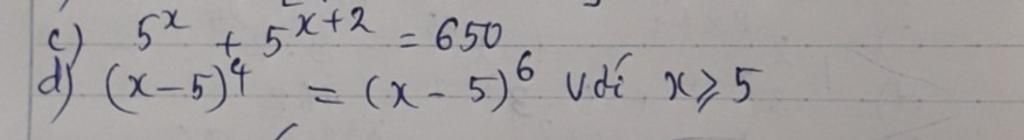 c) 5^x + 5^{x+2} = 650
d) (x-5)^4 = (x-5)^6 với x ⩾ 5